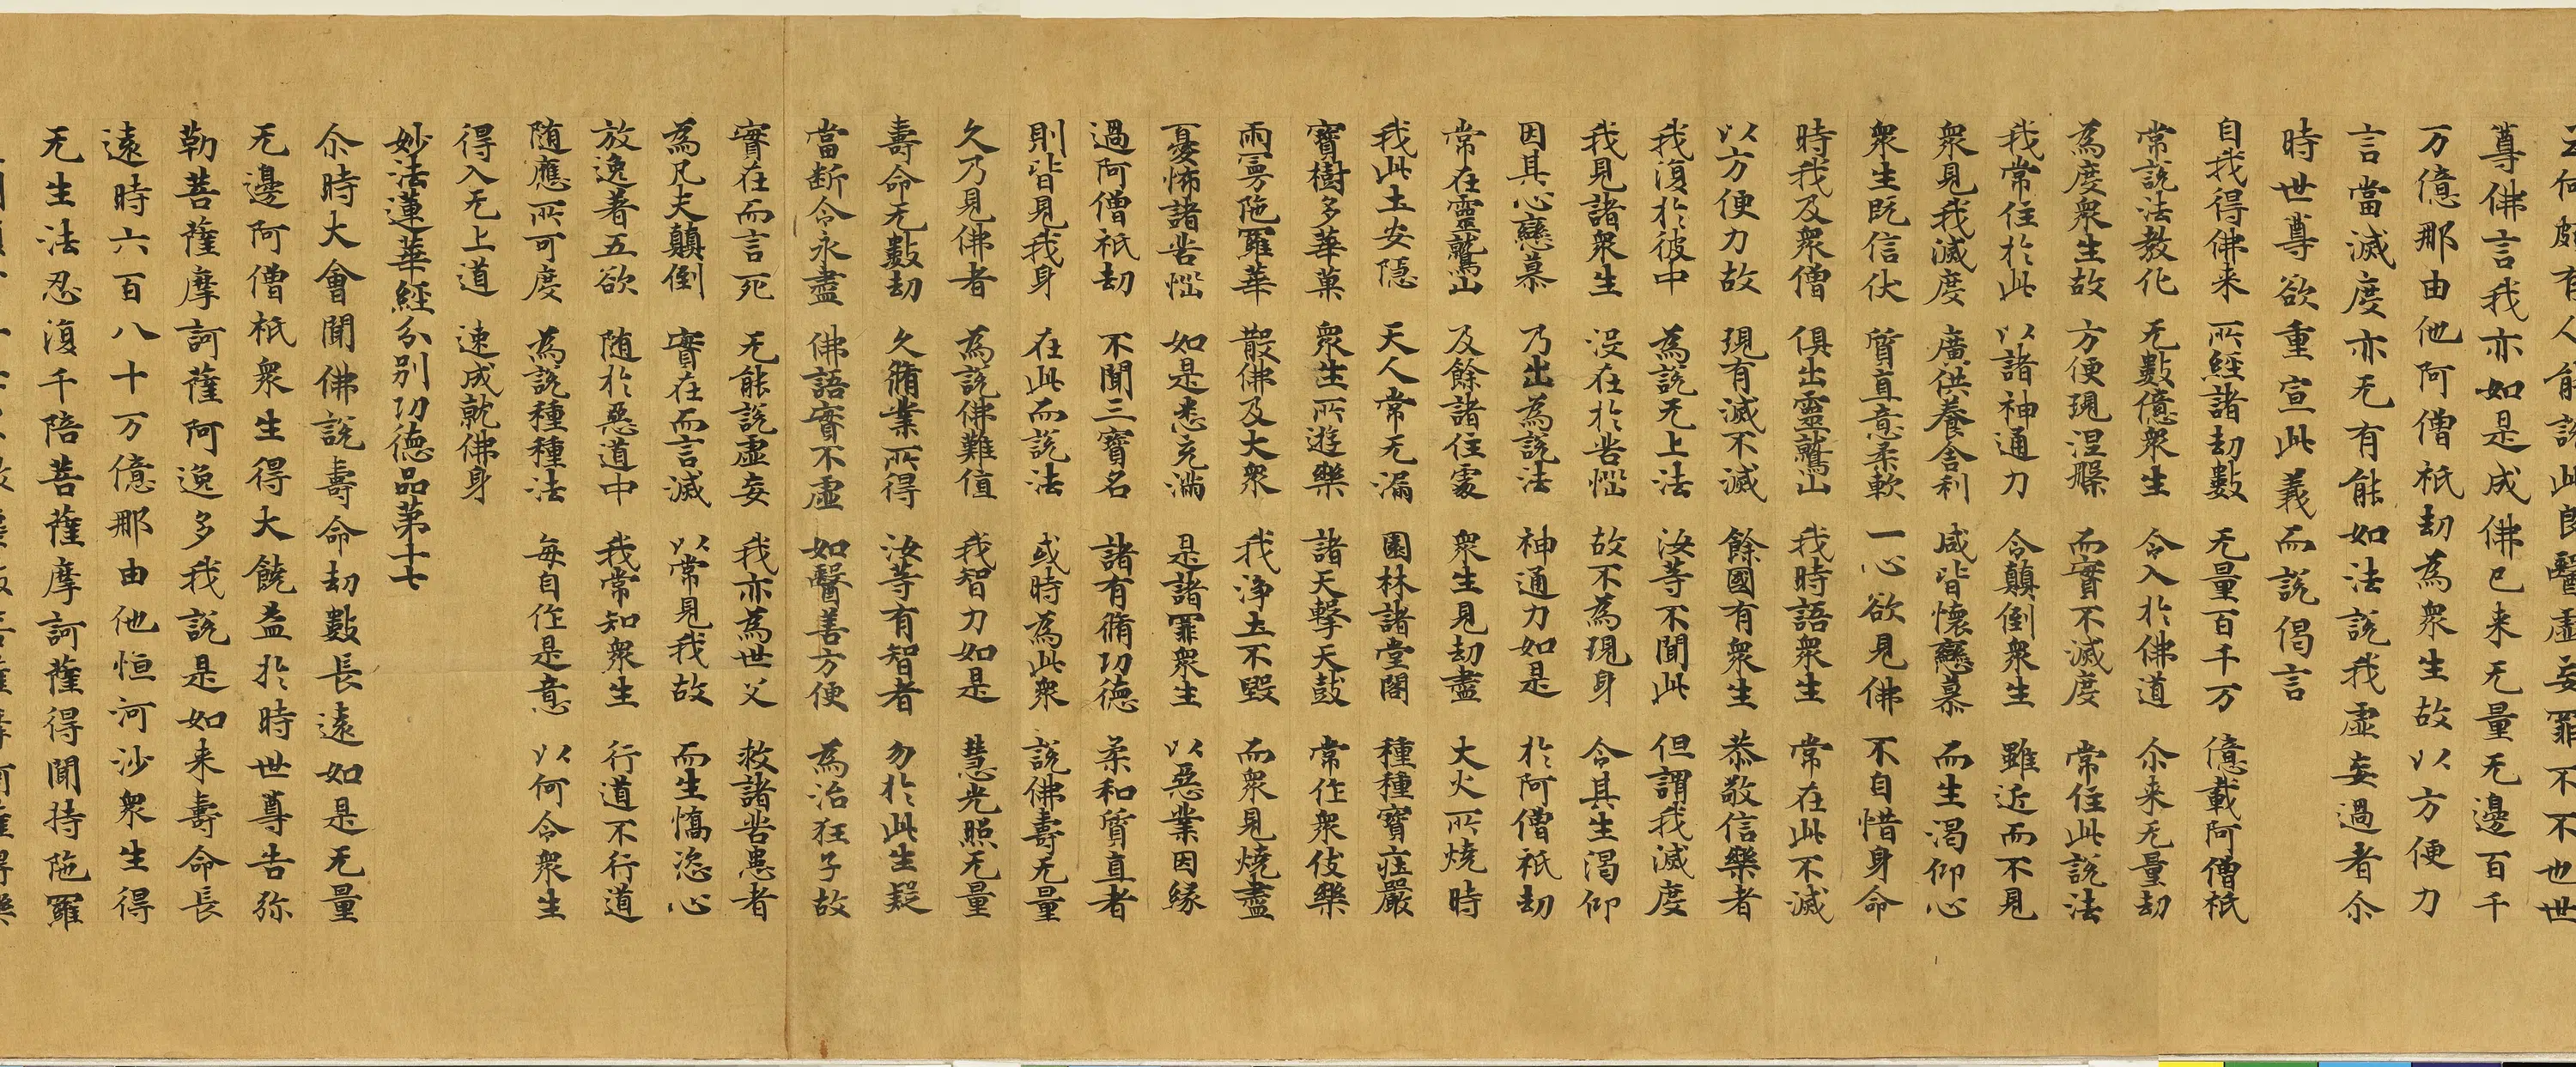 云何頗有人能說此良醫虛妄罪不不也世
尊佛言我亦如是成佛已来无量无邊百千
万億那由他阿僧祇劫為衆生故以方便力
言當滅度亦无有能如法說我虛妄過者尒
時世尊欲重宣此義而說偈言
自我得佛来 所經諸劫數 无量百千万 億載阿僧祇
常說法教化 无數億衆生 令入於佛道 尒来无量劫
為度衆生故 方便現涅槃 而實不滅度 常住此說法
我常住於此 以諸神通力 令顛倒衆生 雖近而不見
衆見我滅度 廣供養舍利 咸皆懷戀慕 而生渴仰心
衆生既信伏 質直意柔軟 一心欲見佛 不自惜身命
時我及衆僧 俱出靈鷲山 我時語衆生 常在此不滅
以方便力故 現有滅不滅 餘國有衆生 恭敬信樂者
我復於彼中 為說无上法 汝等不聞此 但謂我滅度
我見諸衆生 没在於苦惱 故不為現身 令其生渴仰
因其心戀慕 乃出為說法 神通力如是 於阿僧祇劫
常在靈鷲山 及餘諸住處 衆生見劫盡 大火所燒時
我此土安隱 天人常充滿 園林諸堂閣 種種寶莊嚴
寶樹多華菓 衆生所遊樂 諸天擊天鼓 常作衆伎樂
雨曼陁羅華 散佛及大衆 我淨土不毀 而衆見燒盡
憂怖諸苦惱 如是悉充滿 是諸罪衆生 以惡業因緣
過阿僧祇劫 不聞三寶名 諸有脩功德 柔和質直者
則皆見我身 在此而說法 或時為此衆 說佛壽无量
久乃見佛者 為說佛難值 我智力如是 慧光照无量
壽命无數劫 久脩業所得 汝等有智者 勿於此生疑
當断令永盡 佛語實不虛 如醫善方便 為治狂子故
實在而言死 无能說虛妄 我亦為世父 救諸苦患者
為凡夫顛倒 實在而言滅 以常見我故 而生憍恣心
放逸著五欲 随於惡道中 我常知衆生 行道不行道
随應所可度 為說種種法 每自作是意 以何令衆生
得入无上道 速成就佛身
妙法蓮華經分別功德品第十七
尒時大會聞佛說壽命劫數長遠如是无量
无邊阿僧祇衆生得大饒益於時世尊告弥
勒菩薩摩訶薩阿逸多我說是如来壽命長
遠時六百八十万億那由他恒河沙衆生得
无生法忍復千陪菩薩摩訶薩得聞持陁羅